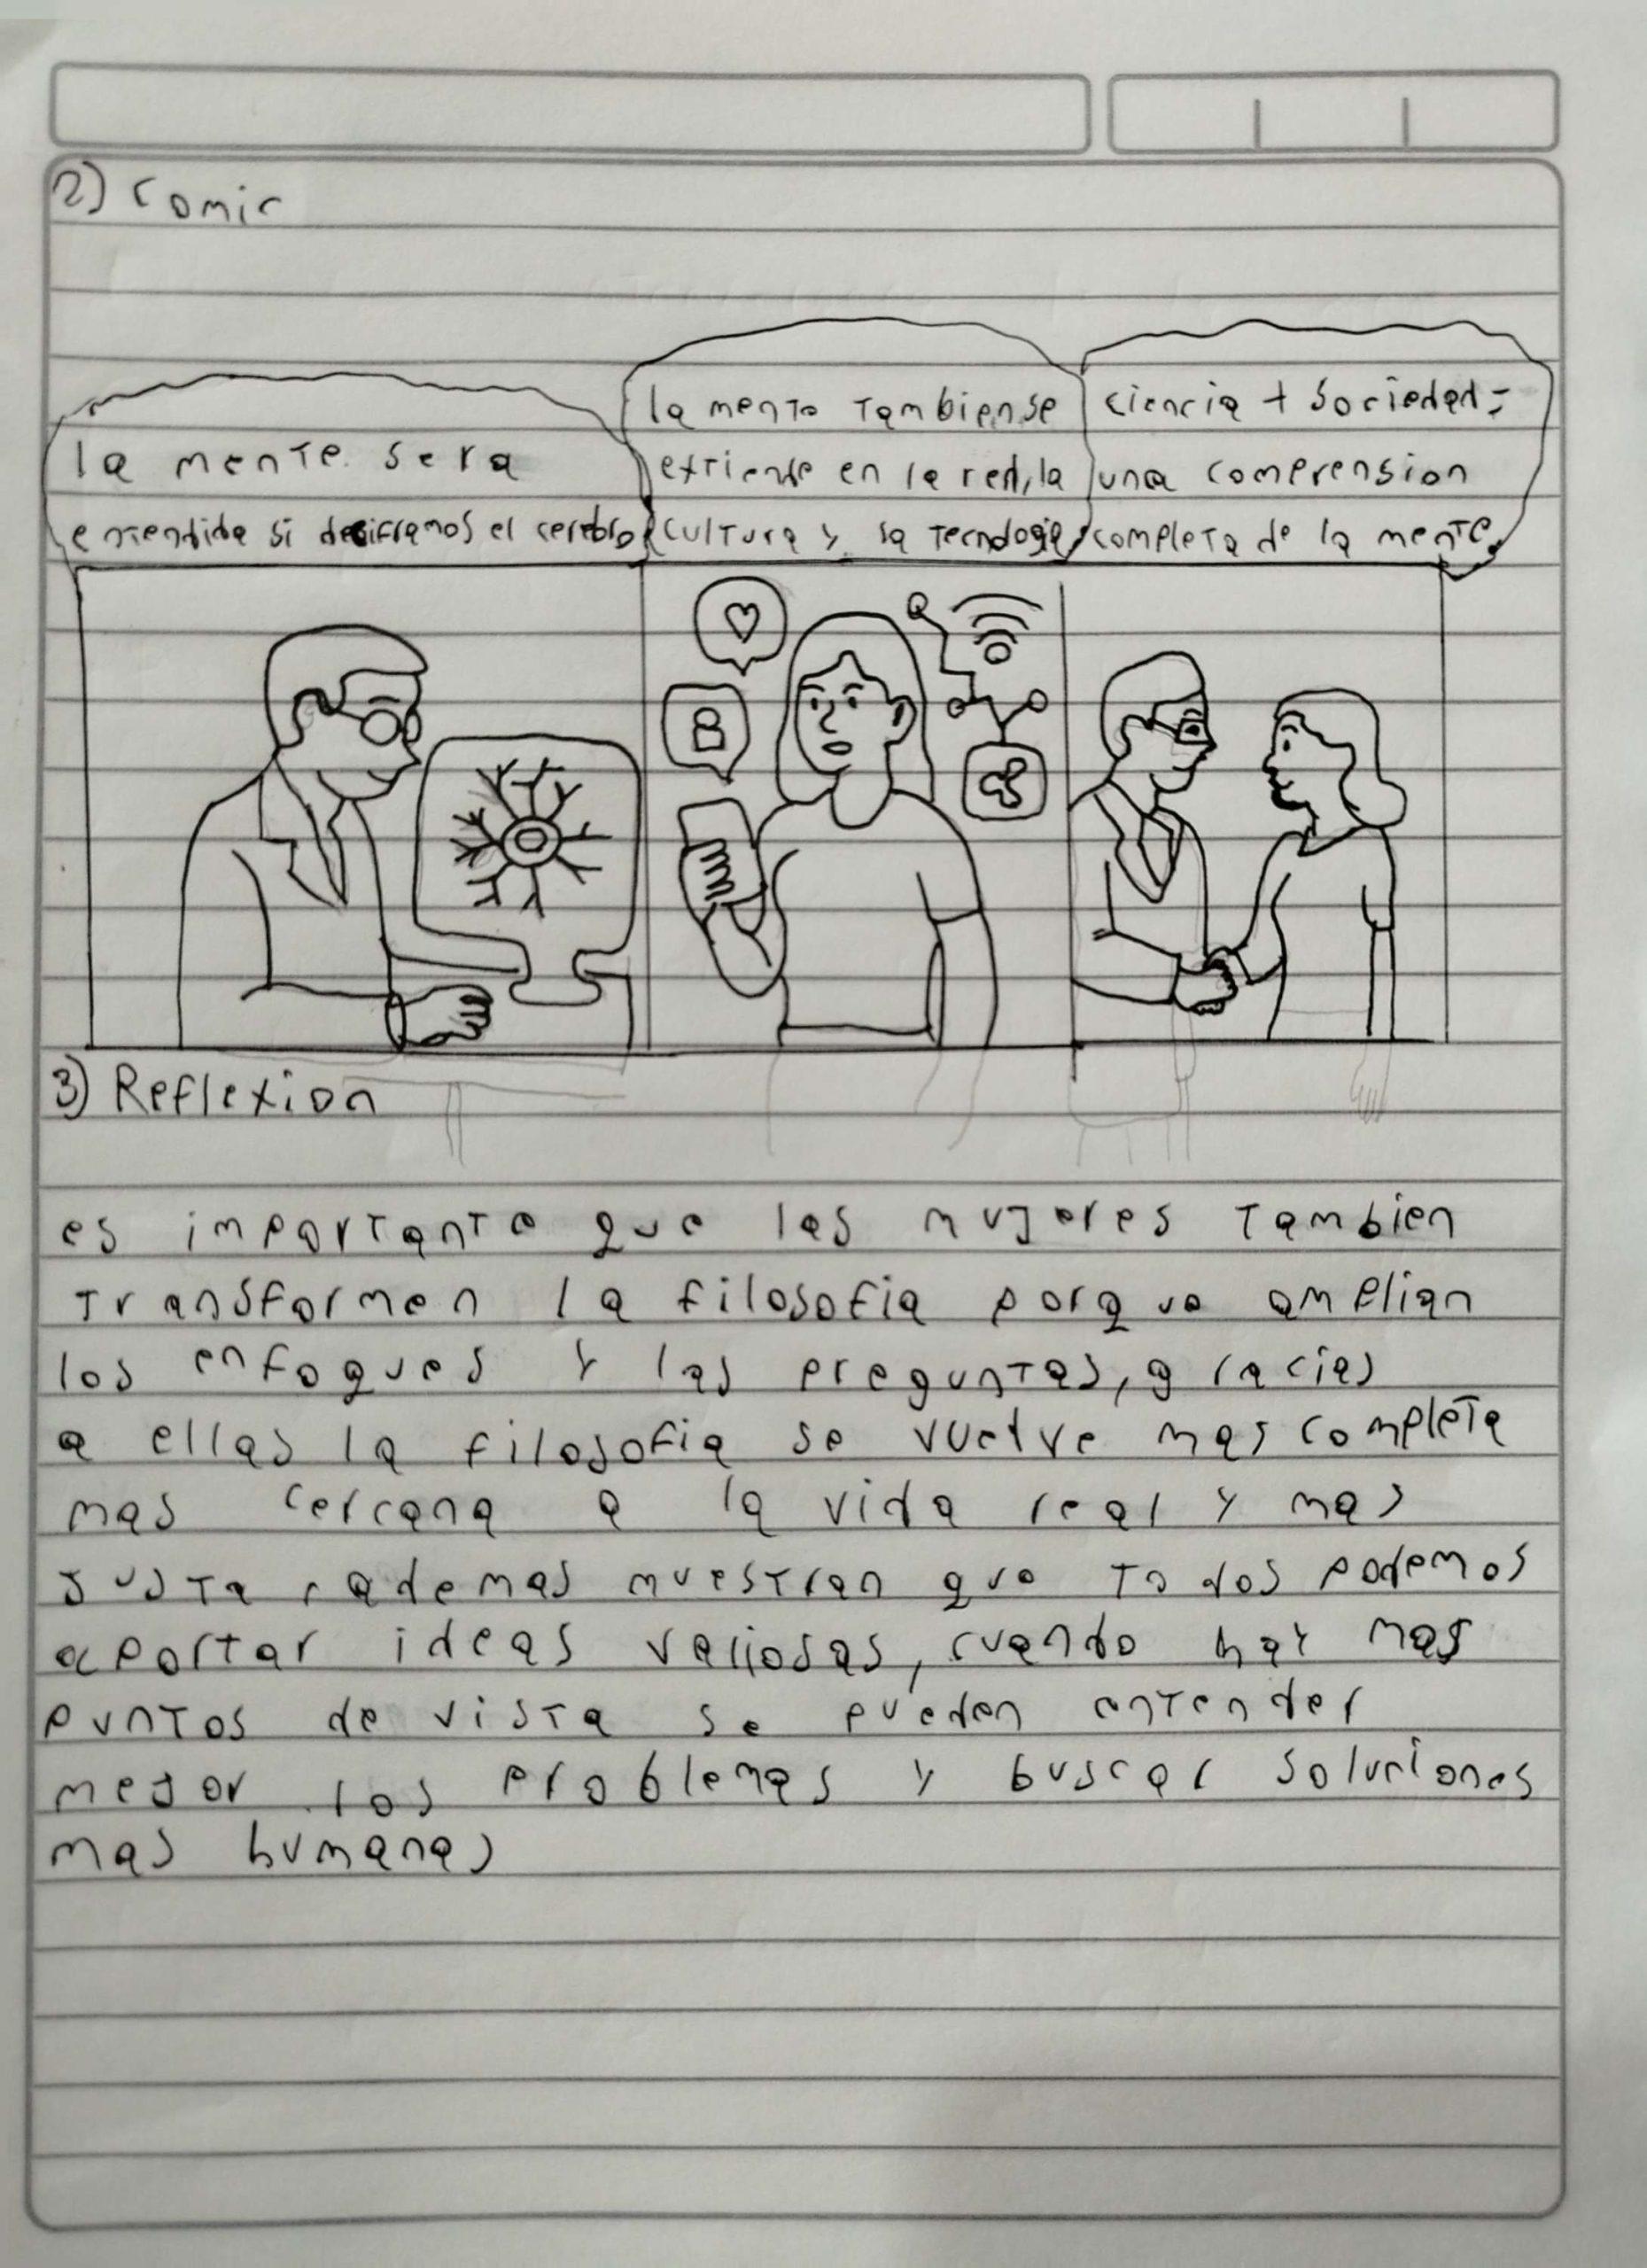 2) comic
la mente sera
entendida si desciframos el cerebro
la mente tambien se
extiende en la red, la
cultura y la tecnologia
ciencia + sociedad =
una comprension
completa de la mente.
3) Reflexion
es importante que las mujeres tambien
transformen la filosofia porque amplian
los enfoques y las preguntas, gracias
a ellas la filosofia se vuelve mas completa
mas cercana a la vida real y mas
justa, ademas muestran que todos podemos
aportar ideas valiosas, cuando hay mas
puntos de vista se pueden entender
mejor los problemas y buscar soluciones
mas humanas